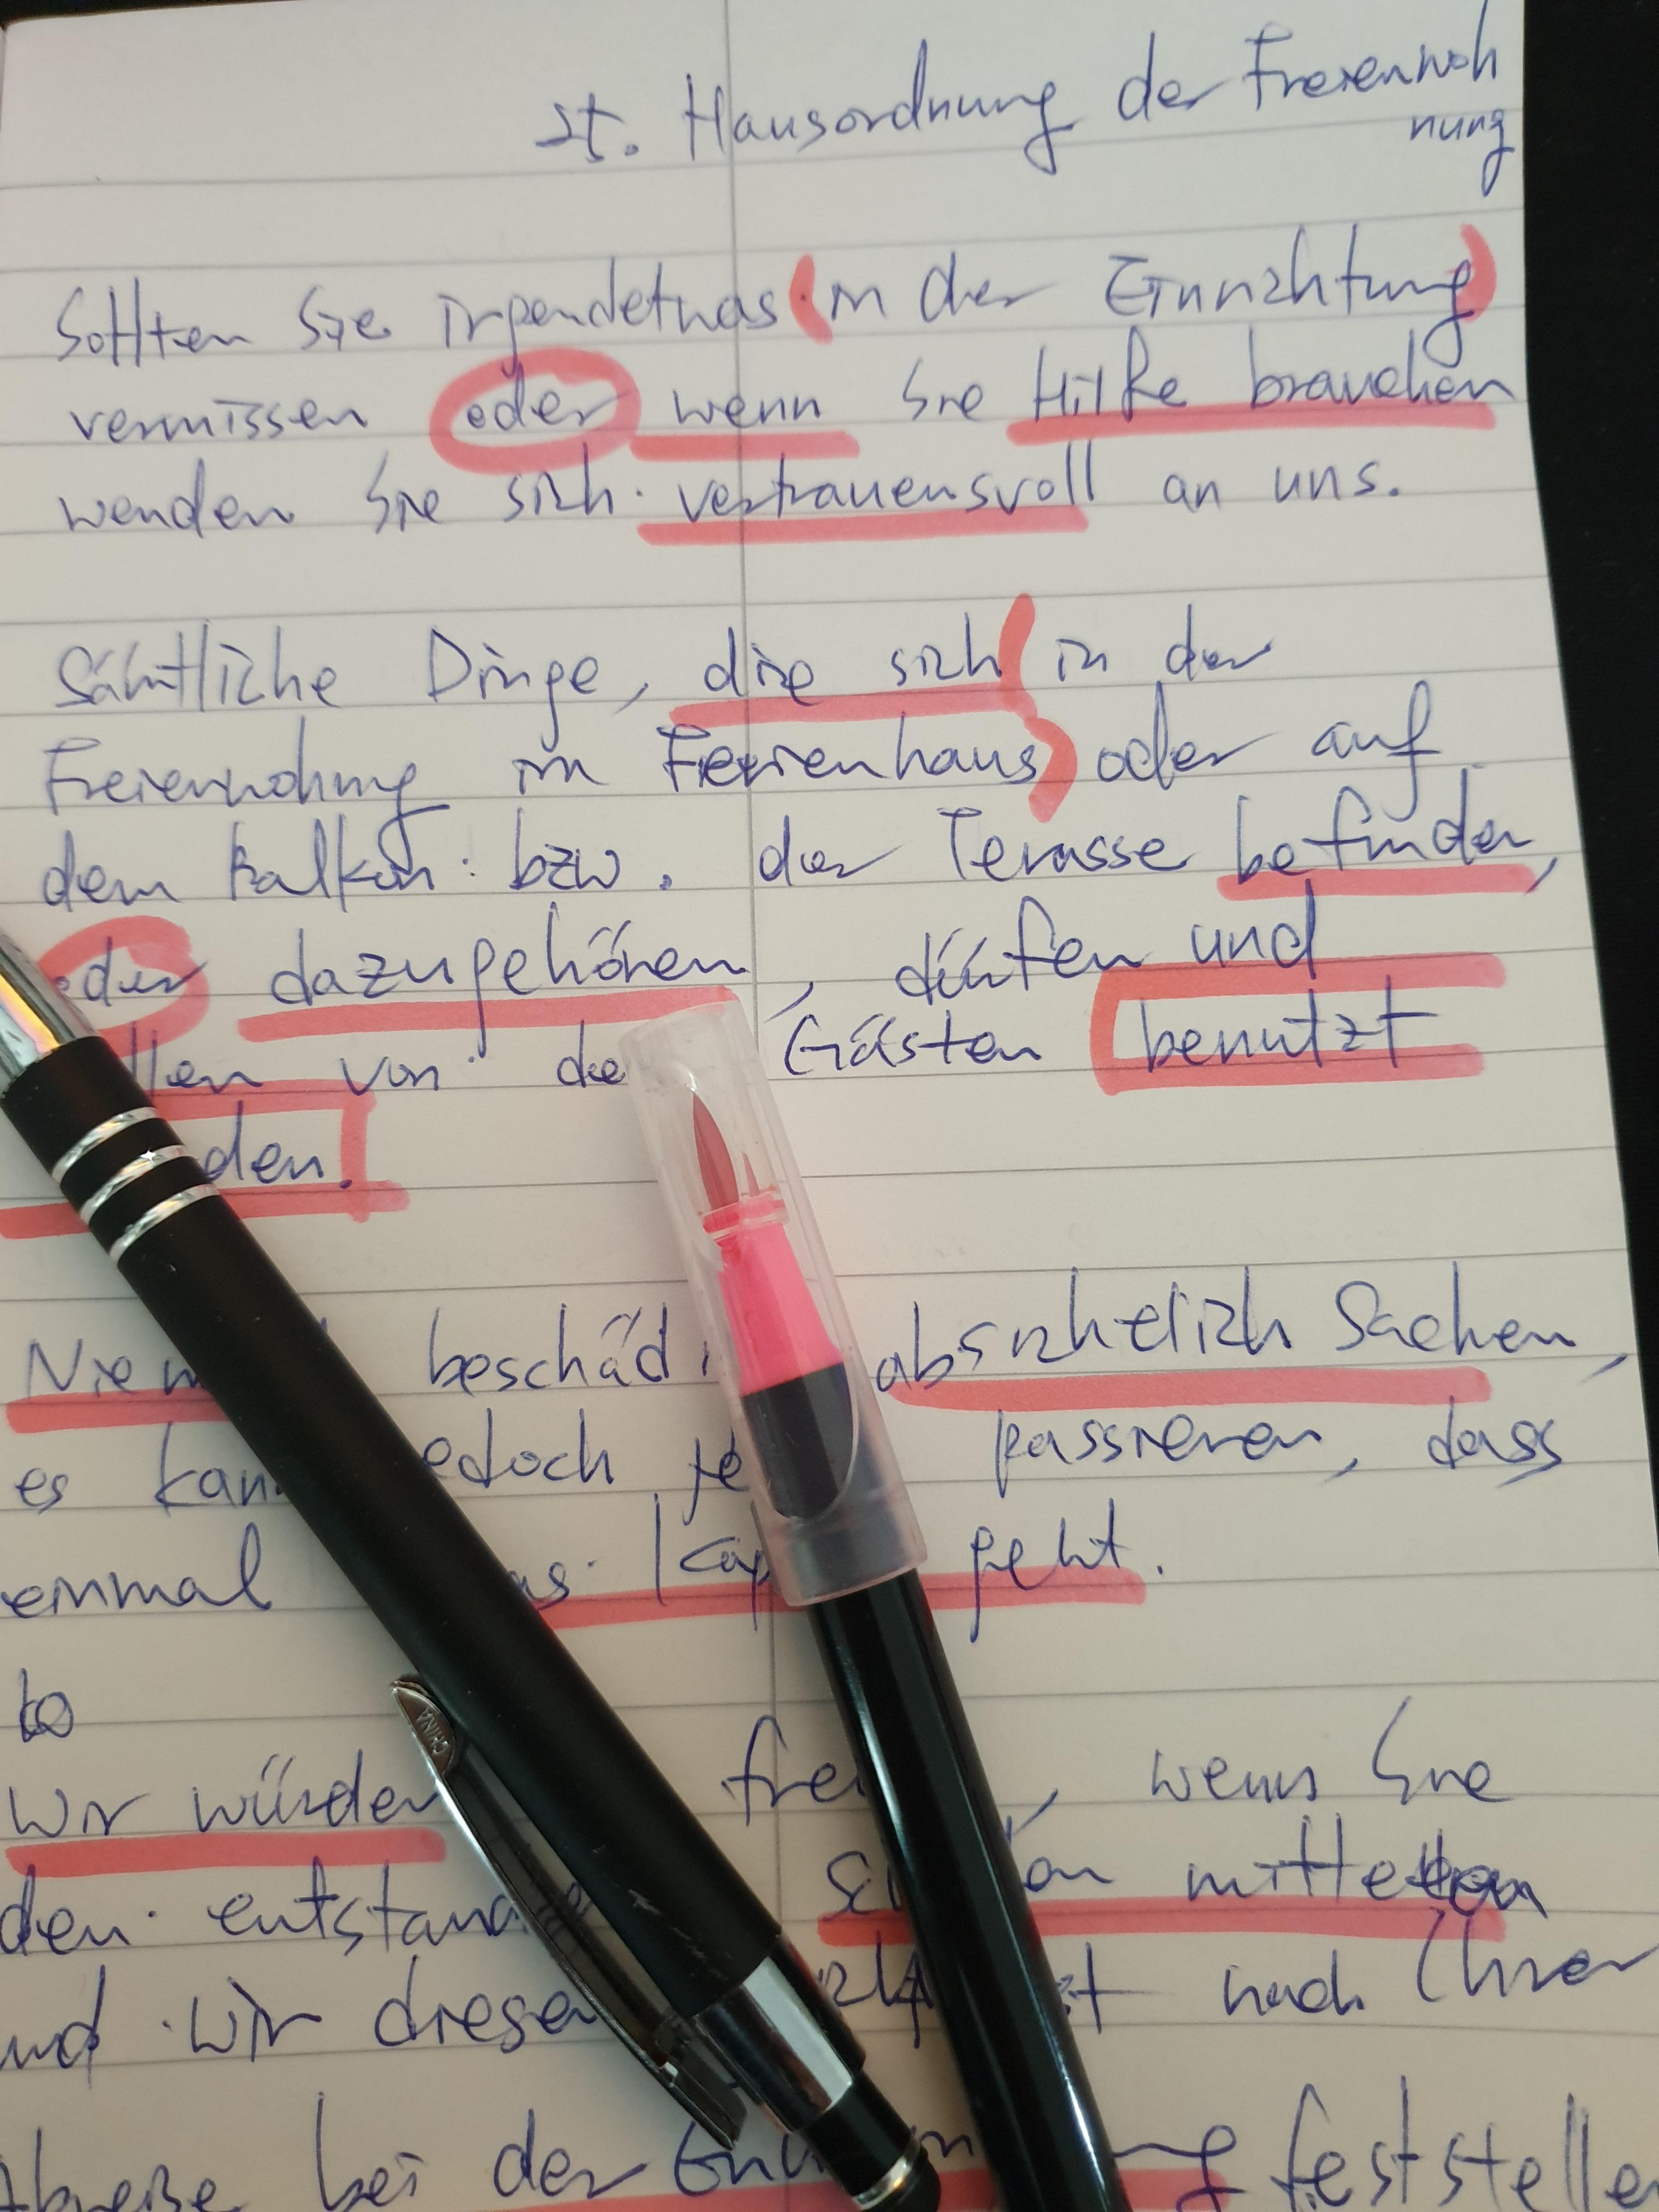 Hausordnung der Freienwoh
nung
Sollten Sie irgendetwas in der Einrichtung
vermissen oder wenn Sie Hilfe brauchen
wenden Sie sich vertrauensvoll an uns.
Sämtliche Dinge, die sich in der
Freienwohnung im Ferienhaus oder auf
dem Balkon bzw. der Terasse befinden,
oder dazugehören, dürfen und
von Gästen benutzt
den.
beschäd absichtlich Sachen,
es kann passieren, dass
einmal geht.
to
Wir würden wenn Sie
den mitteilen
und wir diesen nach Ihrer
Abreise bei der feststellen
CHINA